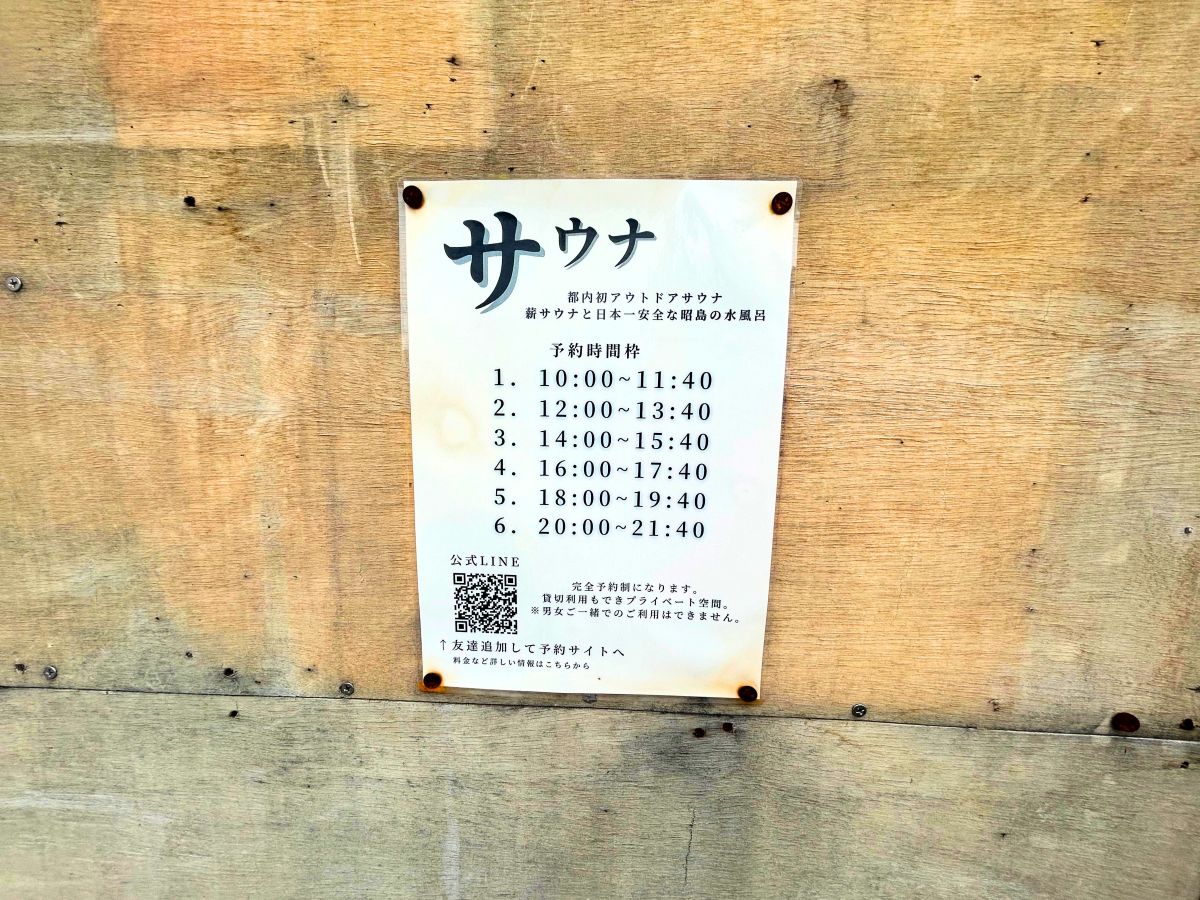 サウナ
都内初アウトドアサウナ
薪サウナと日本一安全な昭島の水風呂
予約時間枠
1. 10:00~11:40
2. 12:00~13:40
3. 14:00~15:40
4. 16:00~17:40
5. 18:00~19:40
6. 20:00~21:40
公式LINE
完全予約制になります。
貸切利用もできプライベート空間。
※男女ご一緒でのご利用はできません。
↑友達追加して予約サイトへ
料金など詳しい情報はこちらから